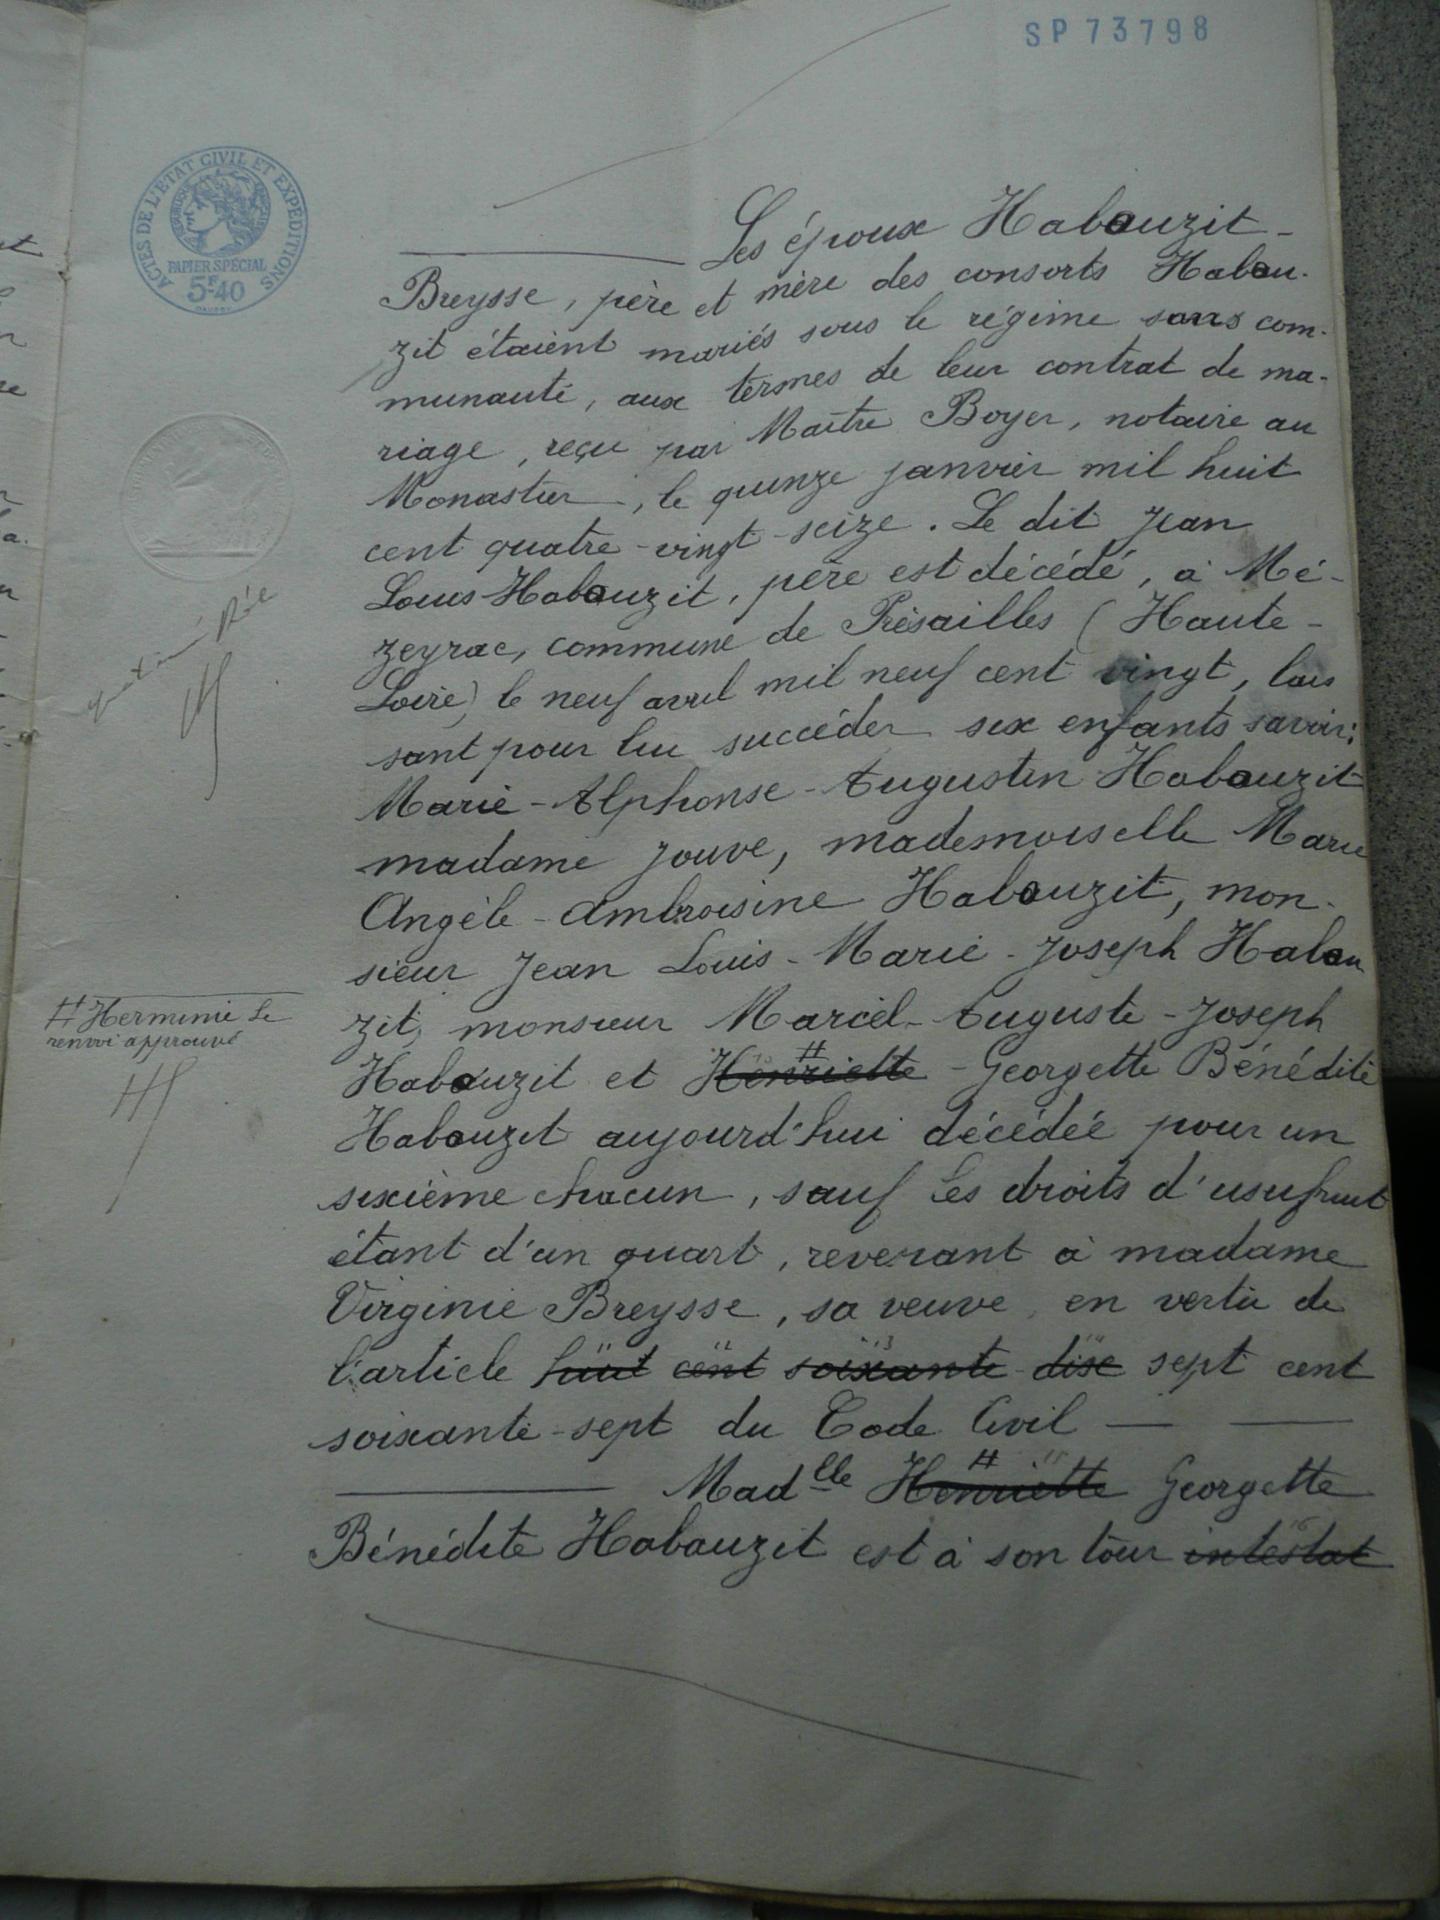 SP 73798
ACTES DE L'ETAT CIVIL ET EXPEDITIONS
REPUBLIQUE FRANÇAISE
PAPIER SPÉCIAL
5F40
Les époux Habouzit-
Breysse, père et mère des consorts Habou-
zit étaient mariés sous le régime sans com-
munauté, aux termes de leur contrat de ma-
riage, reçu par Maître Boyer, notaire au
Monastier, le quinze janvier mil huit
cent quatre-vingt-seize. Le dit Jean
Louis Habouzit, père est décédé, à Mé-
zeyrac, commune de Présailles (Haute-
Loire) le neuf avril mil neuf cent vingt, lais
sant pour lui succéder six enfants savoir:
Marie-Alphonse-Augustin Habouzit
madame Jouve, mademoiselle Marie
Angèle-Ambroisine Habouzit, mon-
sieur Jean Louis-Marie-Joseph Habou
zit, monsieur Marcel-Auguste-Joseph
# Herminie Le
renvoi approuvé
Habouzit et # Henriette-Georgette Bénédite
Habouzit aujourd'hui décédée pour un
sixième chacun, sauf les droits d'usufruit
étant d'un quart, revenant à madame
Virginie Breysse, sa veuve en vertu de
l'article huit cent soixante dix sept cent
soixante-sept du Code Civil
Mad lle # Henriette Georgette
Bénédite Habouzit est à son tour intestat